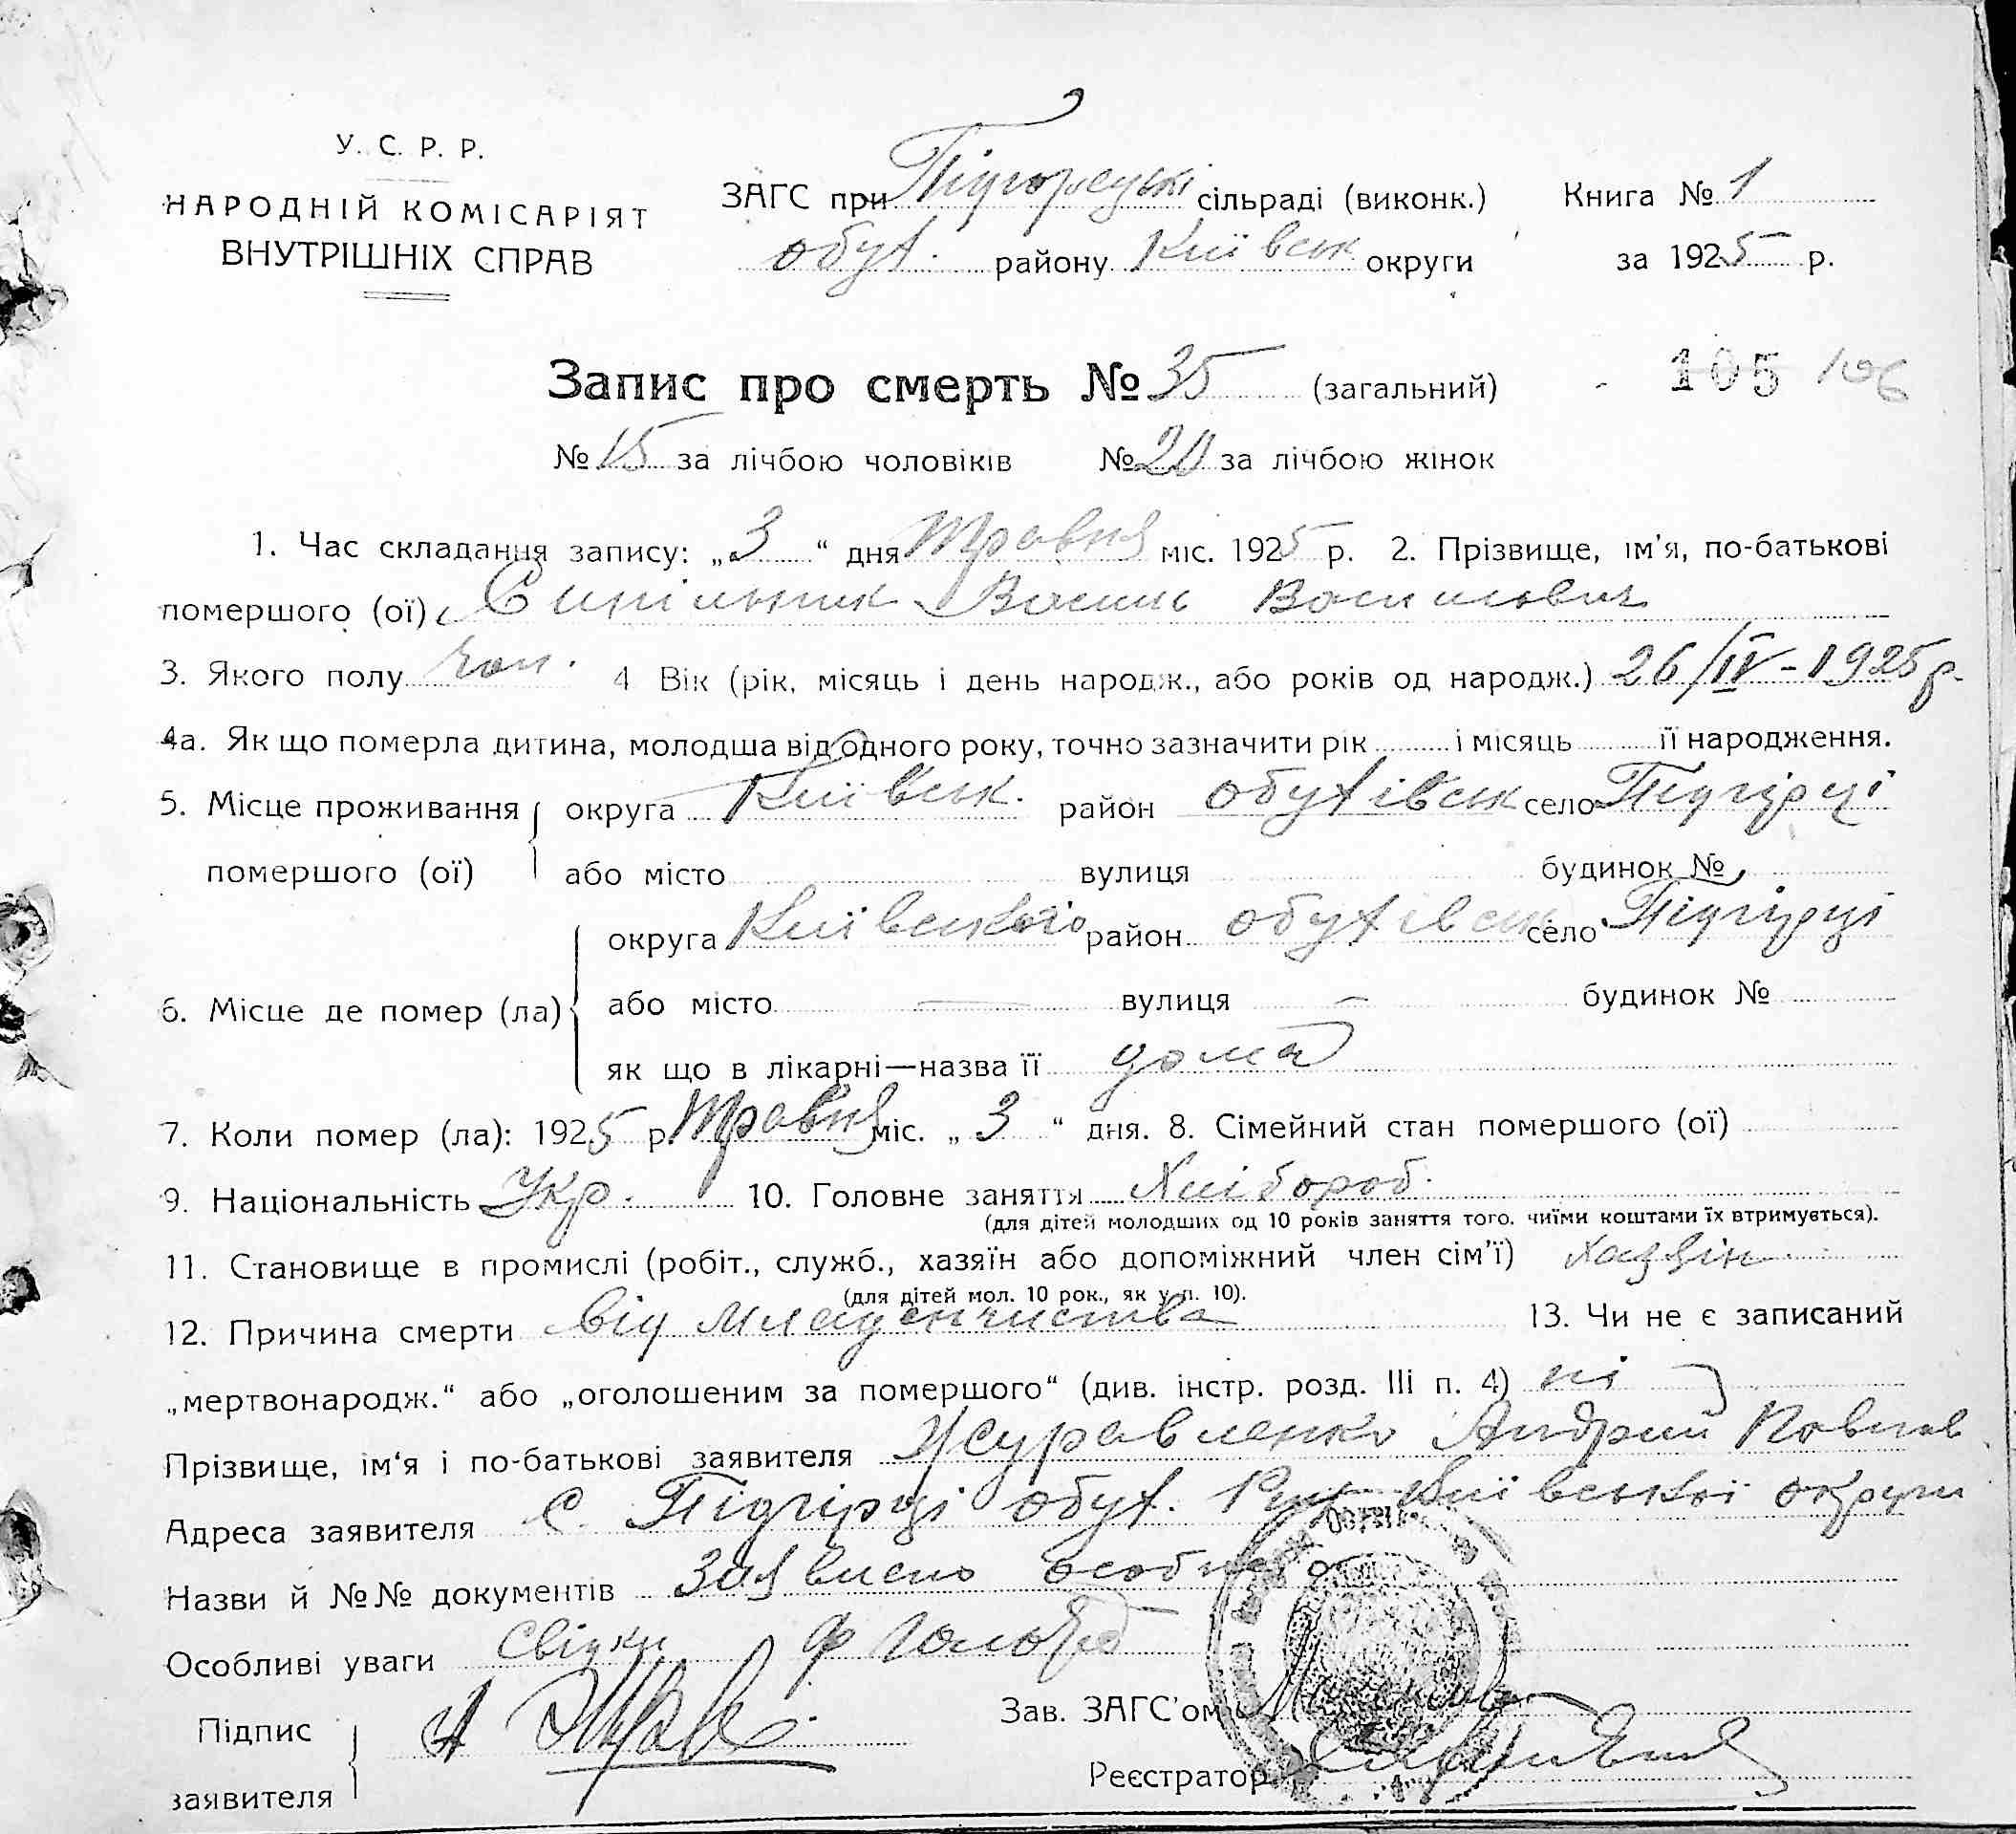 У. С. Р. Р.
НАРОДНІЙ КОМІСАРІЯТ
ВНУТРІШНІХ СПРАВ
ЗАГС при Підгорській сільраді (виконк.)
обух. району Київськ округи
Книга № 1
за 1925 р.
Запис про смерть № 35 (загальний)
105 106
№ 15 за лічбою чоловіків № 20 за лічбою жінок
1. Час складання запису: „3“ дня Травня міс. 1925 р. 2. Прізвище, ім'я, по-батькові
помершого (ої) Василь Васильович
3. Якого полу чол. 4 Вік (рік, місяць і день народж., або років од народж.) 26/IV-1925 р.
4а. Як що померла дитина, молодша від одного року, точно зазначити рік і місяць її народження.
5. Місце проживання округа Київськ. район обухівськ село Підгірці
помершого (ої) або місто вулиця будинок №
округа Київського район обухівськ село Підгірці
6. Місце де помер (ла) або місто — вулиця — будинок №
як що в лікарні—назва її дома
7. Коли помер (ла): 1925 р. Травня міс. „3“ дня. 8. Сімейний стан помершого (ої)
9. Національність Укр. 10. Головне заняття Хлібороб.
(для дітей молодших од 10 років заняття того, чиїми коштами їх втримується).
11. Становище в промислі (робіт., служб., хазяїн або допоміжний член сім'ї) хазяїн
(для дітей мол. 10 рок., як у п. 10).
12. Причина смерти від младенчиства 13. Чи не є записаний
„мертвонародж.“ або „оголошеним за помершого“ (див. інстр. розд. III п. 4) ні
Прізвище, ім'я і по-батькові заявителя Журавленко Андрий Павлов
Адреса заявителя с. Підгірці обух. Київської округи
Назви й №№ документів Заявлено особисто
Особливі уваги свідки
Підпис
заявителя
Зав. ЗАГС'ом
Реєстратор